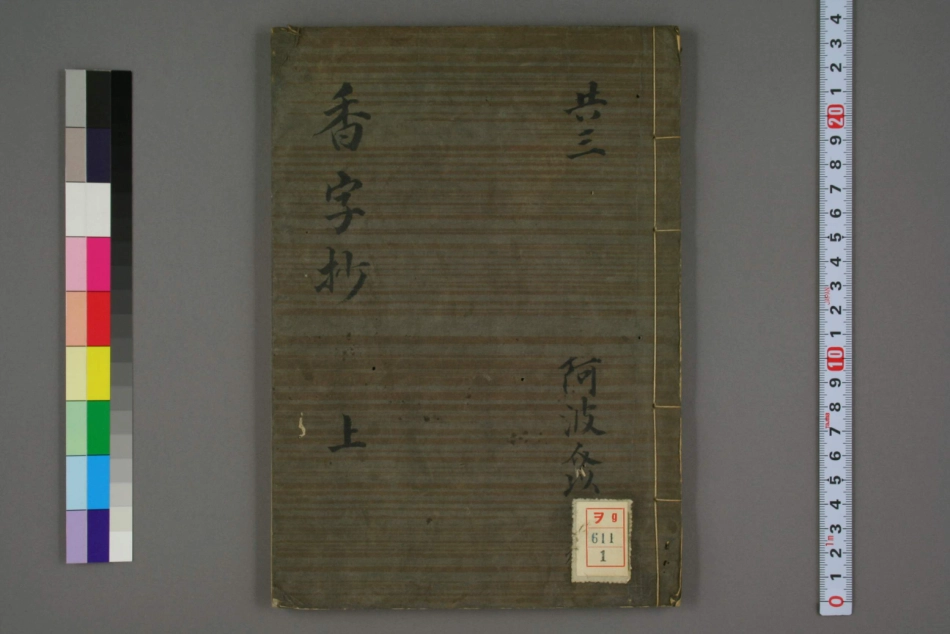 共三
阿波
香字抄
上
ヲ g
611
1
4
3
2
1
20
9
8
7
6
5
4
3
2
1
10
9
8
7
6
5
4
3
2
1
0